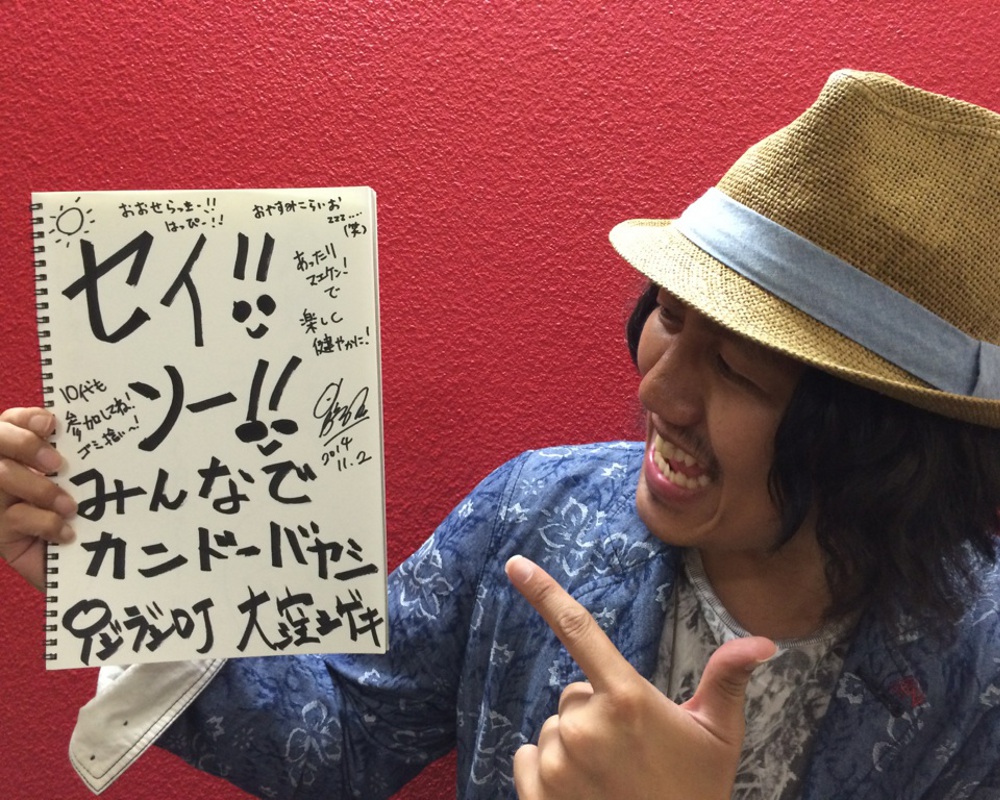 おおせらっきー!!
はっぴー!!
おやすみこらいお
zzz....
(笑)
セイ!!
あったり
マエケン!
で
楽しく
健やかに!
ソー!!
10代も
参加してね!
ゴミ拾い〜!
2014
11.2
みんなで
カンドーバヤシ
ラジオDJ 大窪シゲキ